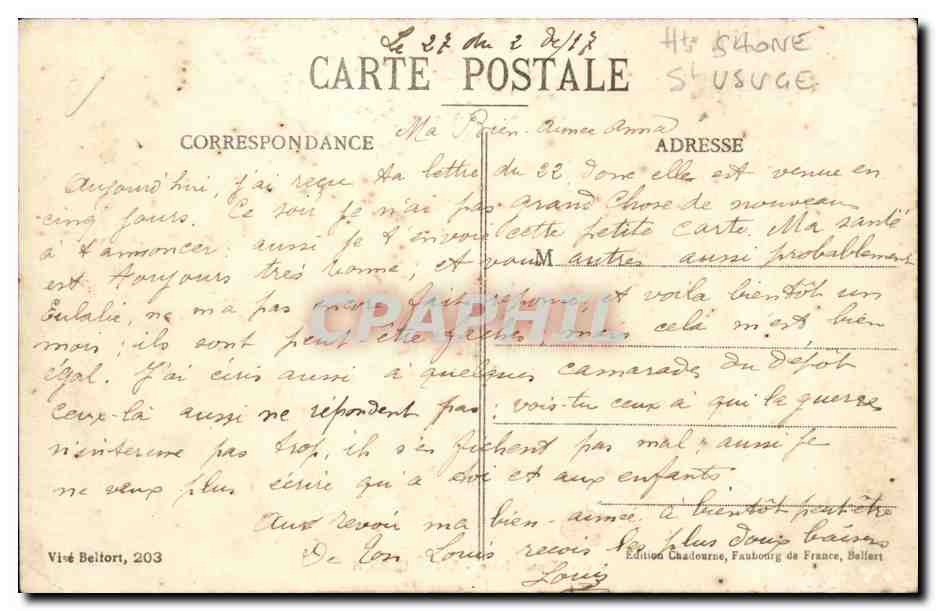 Le 27 du 2 de/17
Hte SAONE
St USUGE
CARTE POSTALE
Ma Bien-aimée Anna
CORRESPONDANCE
ADRESSE
Aujourd'hui, j'ai reçu ta lettre du 22 donc elle est venue en
cinq jours. Ce soir je n'ai pas grand chose de nouveau
à t'annoncer aussi je t'envoie cette petite carte. Ma santé
est toujours très bonne, et vous M autres aussi probablement
Eulalie, ne m'a pas encore fait réponse, et voila bientôt un
CPAPHIL
mois; ils sont peut être fachés, mais celà m'est bien
égal. J'ai écris aussi à quelques camarades du dépôt
ceux-là aussi ne répondent pas; vois-tu ceux à qui la guerre
pas trop, il s'en fichent pas mal; aussi je
ne veux plus écrire qu'à toi et aux enfants
Au revoir ma bien-aimée à bientôt peut-être
De Ton Louis reçois les plus doux baisers
Visé Belfort, 203
Edition Chadourne, Faubourg de France, Belfort
Louis